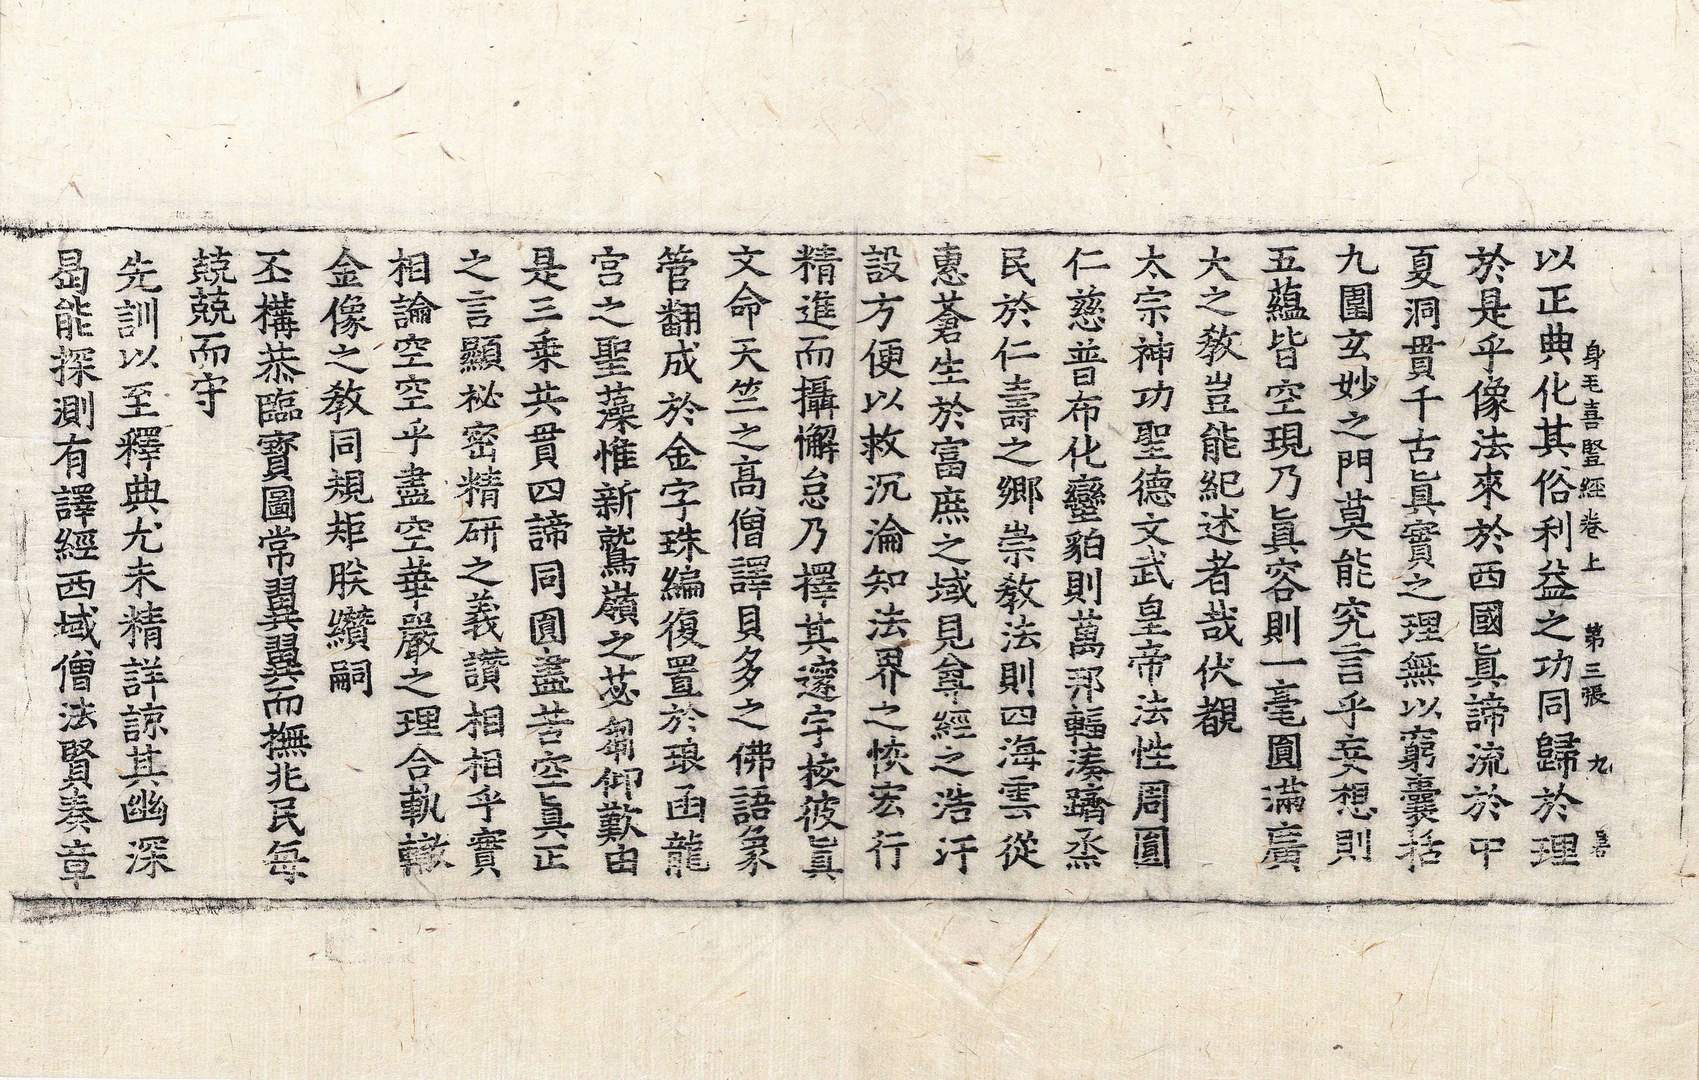 身毛喜竪經卷上　第三張　九　喜
以正典化其俗利益之功同歸於理
於是乎像法來於西國眞諦流於中
夏洞貫千古眞實之理無以窮囊括
九圍玄妙之門莫能究言乎妄想則
五蘊皆空現乃眞容則一毫圓滿廣
大之敎豈能紀述者哉伏覩
太宗神功聖德文武皇帝法性周圓
仁慈普布化蠻貊則萬邦輻湊躋烝
民於仁壽之鄕崇敎法則四海雲從
惠蒼生於富庶之域見尊經之浩汗
設方便以救沉淪知法界之恢宏行
精進而攝懈怠乃擇其邃宇校彼眞
文命天竺之高僧譯貝多之佛語象
管翻成於金字珠編復置於琅函龍
宮之聖藻惟新鷲嶺之苾蒭仰歎由
是三乘共貫四諦同圓盡苦空眞正
之言顯祕密精硏之義讚相相乎實
相論空空乎盡空華嚴之理合執轍
金像之敎同規矩朕纘嗣
丕構恭臨寶圖常翼翼而撫兆民每
兢兢而守
先訓以至釋典尤未精詳諒其幽深
曷能探測有譯經西域僧法賢奏章